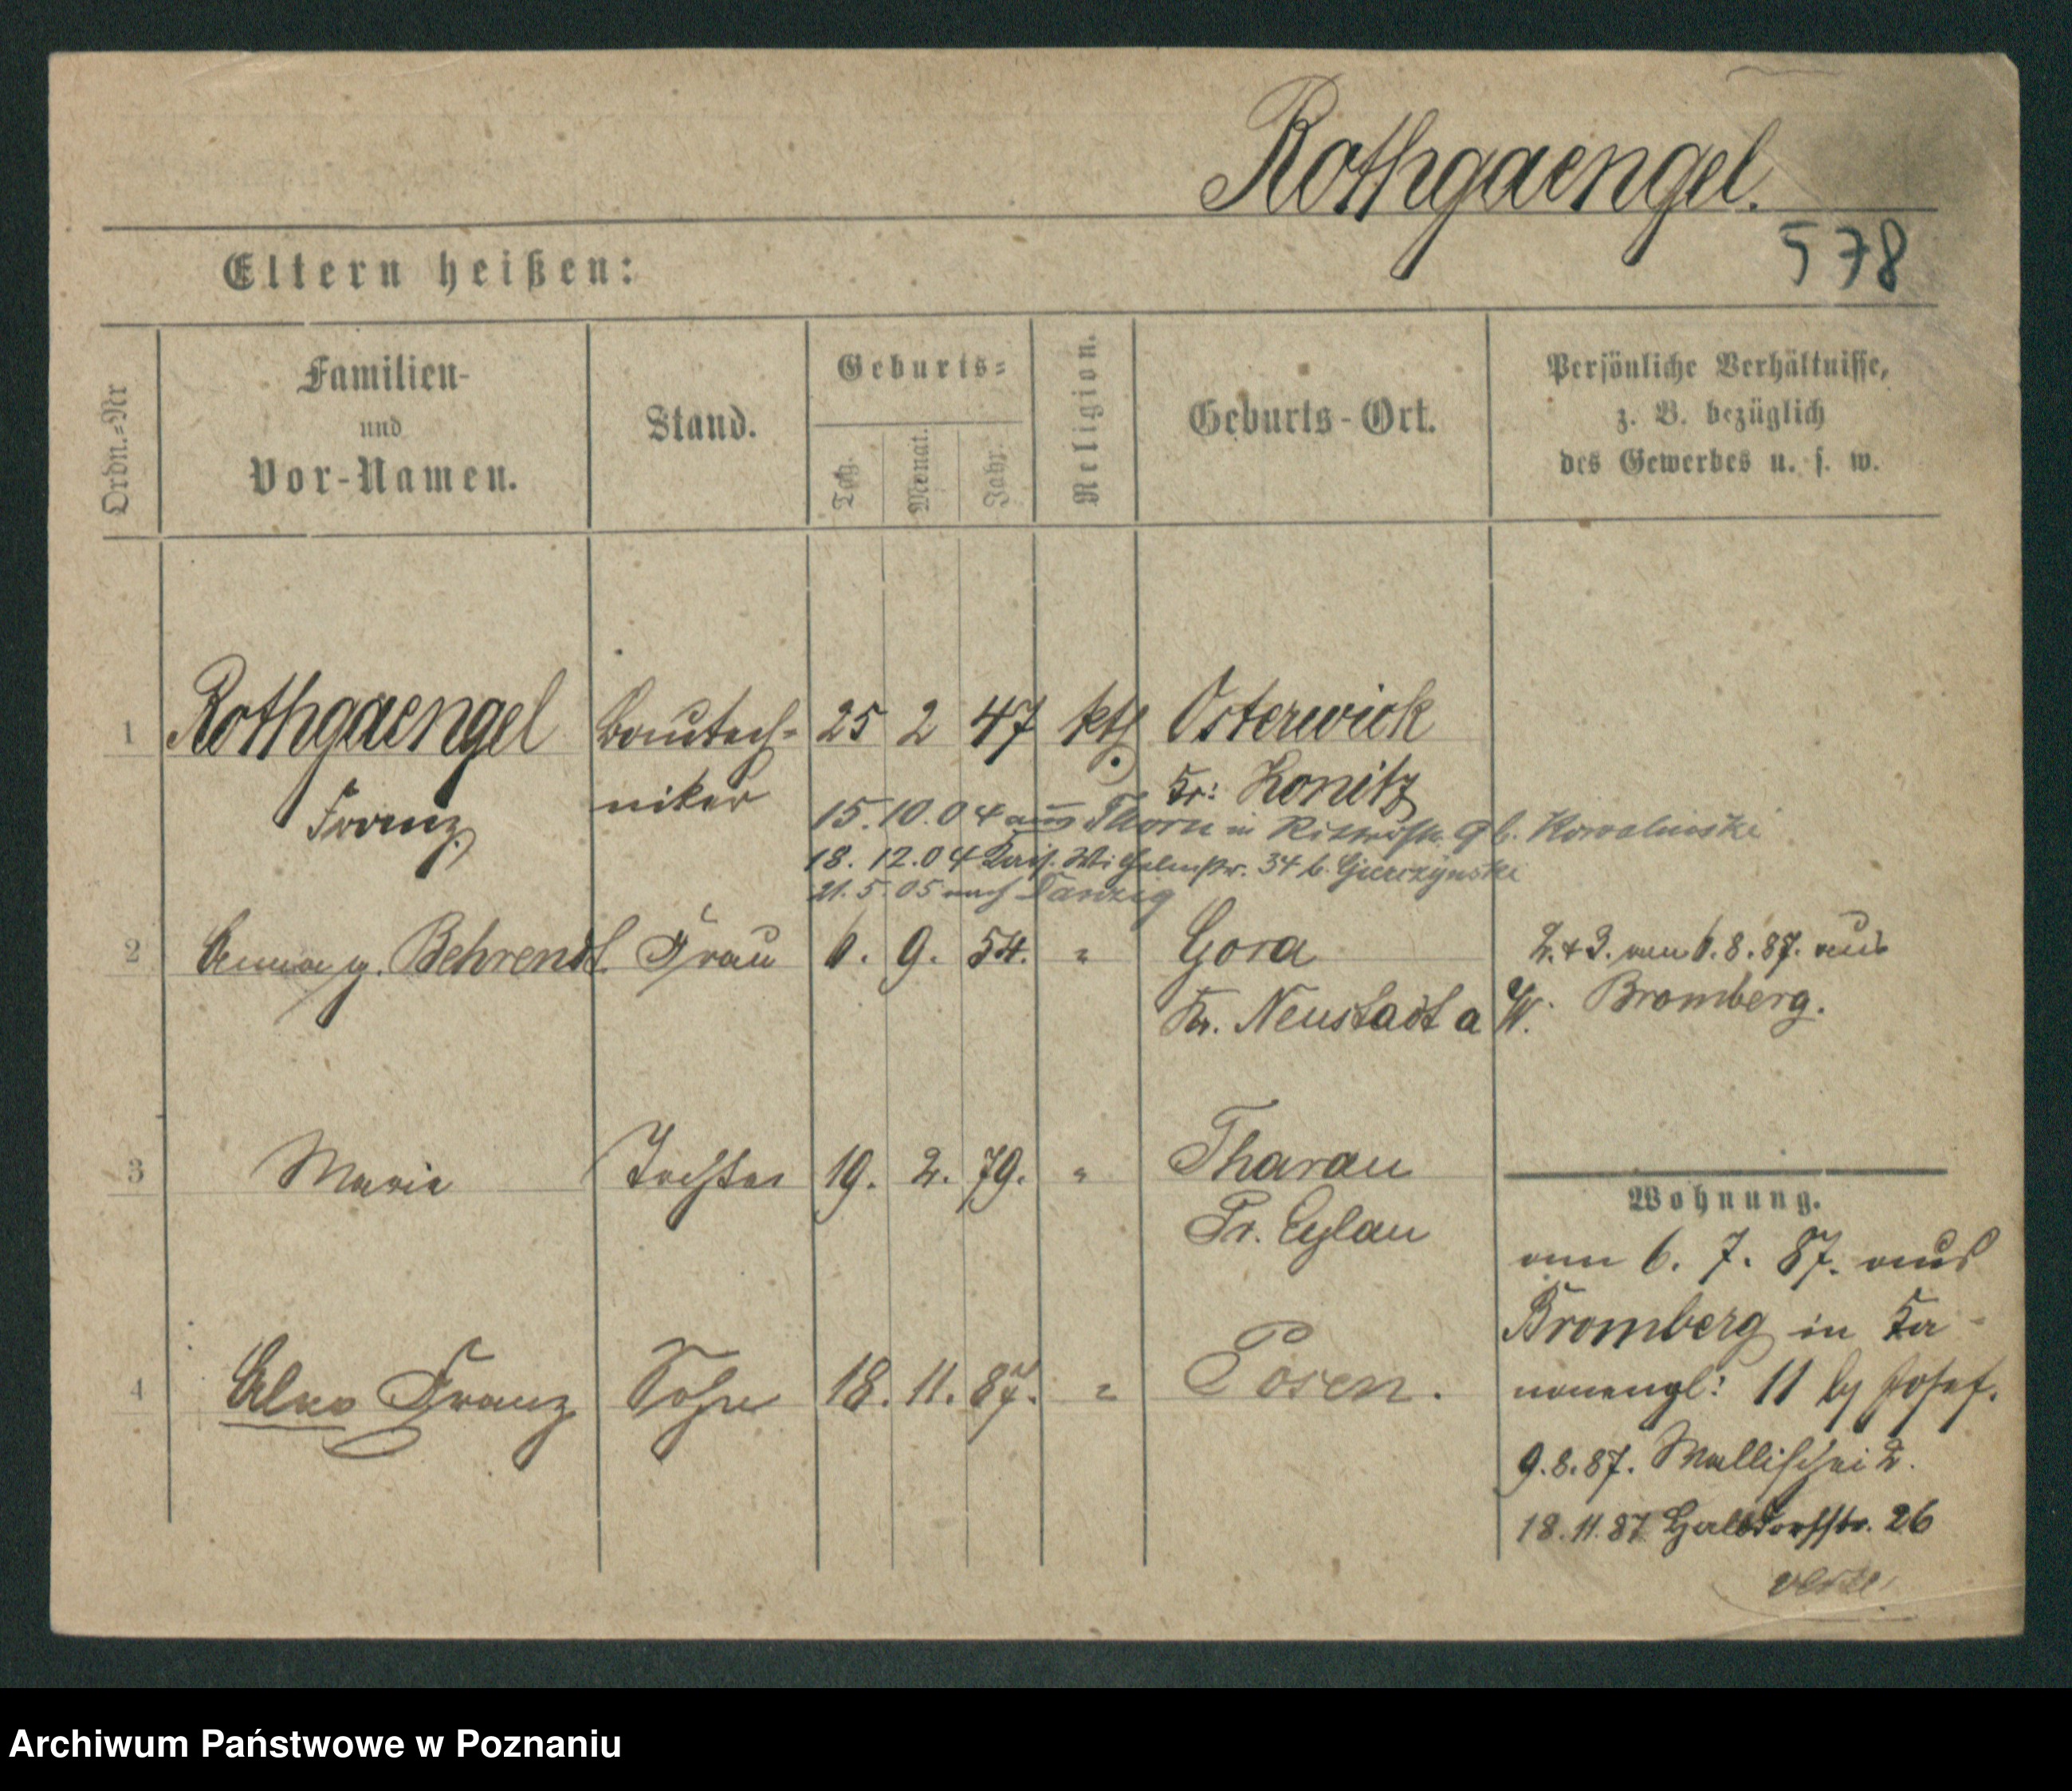 Rothgaengel.
578
Eltern heißen:
Ordn.=Nr
Familien-
und
Vor-Namen.
Stand.
Geburts=
Tag.
Monat.
Jahr.
Religion.
Geburts-Ort.
Persönliche Verhältnisse,
z. B. bezüglich
des Gewerbes u. s. w.
1 Rothgaengel Bautech- 25 2 47 kth. Osterwick
Franz niker Kr: Konitz
15.10.04 aus Thorn in Ritterstr. 9 b. Kowalinski
18. 12.04 Kais. Wilhelmstr. 34 b. Gierczynski
21.5.05 nach Danzig
2 Anna g. Behrendt. Frau 6. 9. 54. " Gora 2.+3. am 6.8.87. aus
Kr. Neustadt a/W. Bromberg.
3 Marie Tochter 19. 2. 79. " Tharau
Pr. Eylau
Wohnung.
am 6. 7. 87. aus
Bromberg in Ka-
nonengl: 11 by Josef.
4 Franz Sohn 18. 11. 87. " Posen.
9.8.87. Wallischei 2.
18.11.87 Halbdorfstr. 26
Archiwum Państwowe w Poznaniu